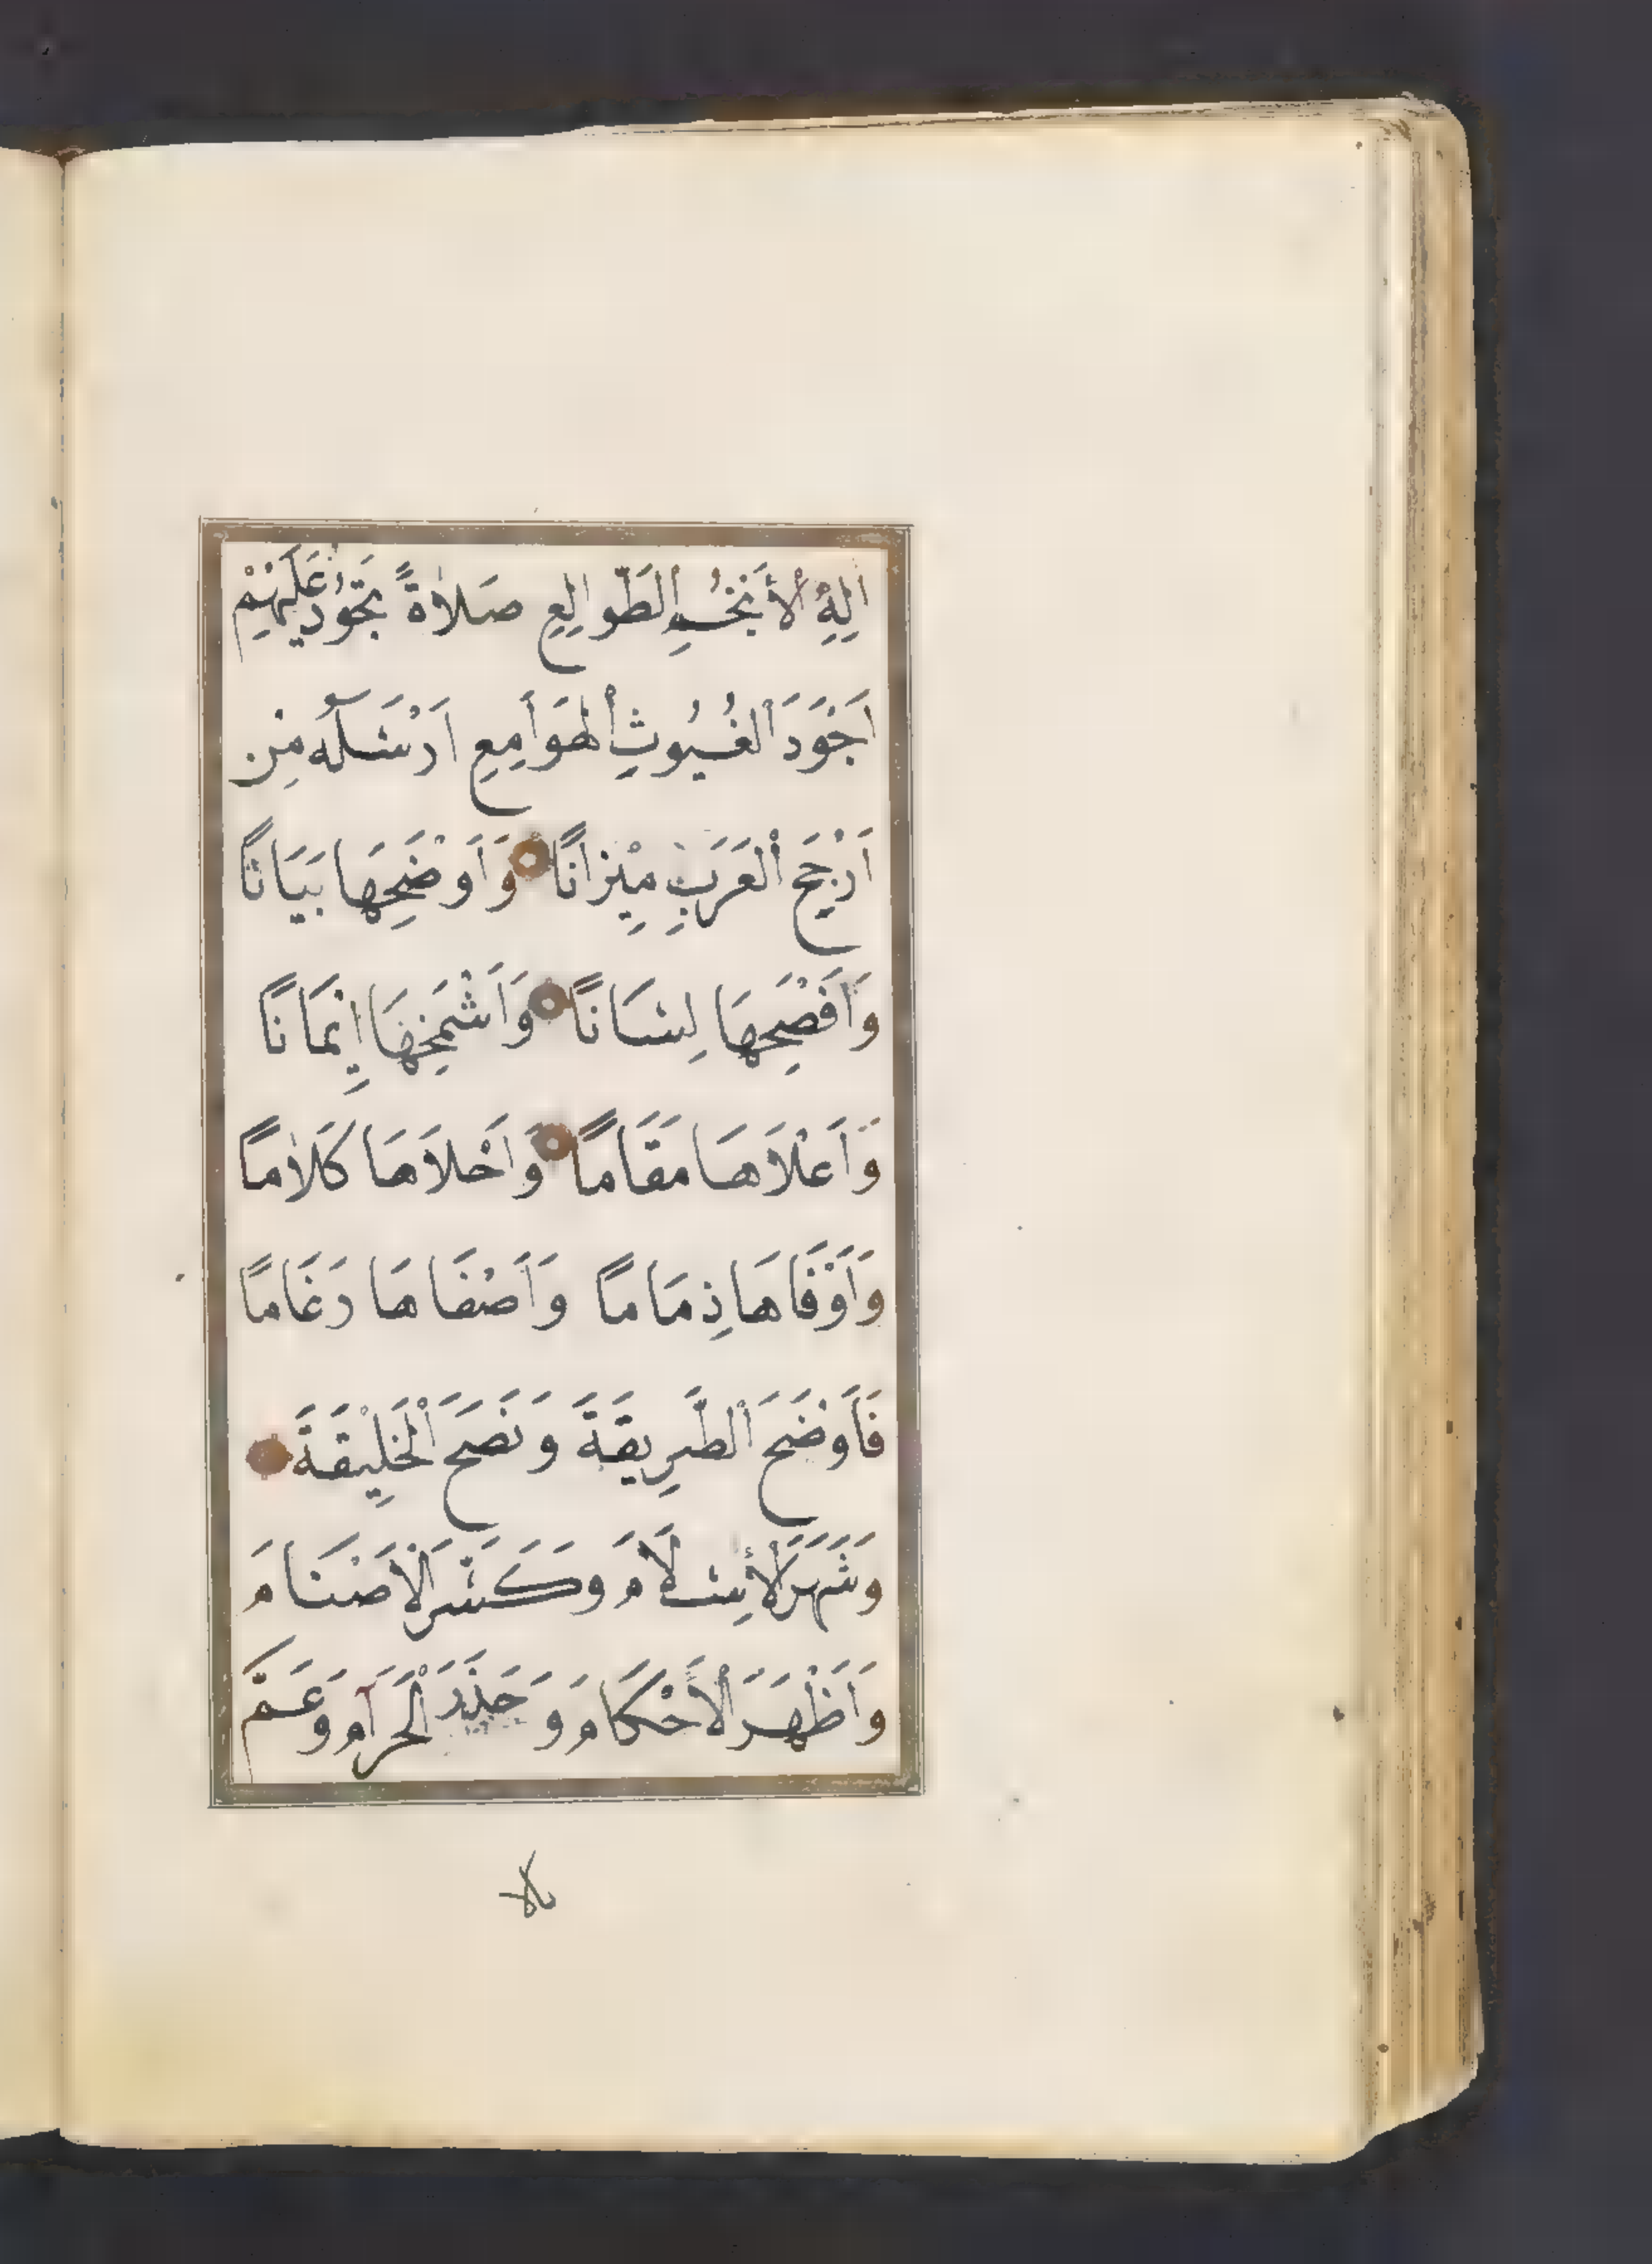 اٰلِهِ الْأَنْجُمِ الطَّوَالِعِ صَلَاةً تَجُودُ عَلَيْهِمْ
اَجْوَدَ الْغُيُوثِ الْهَوَامِعِ اَرْسَلَهُ مِنْ
اَرْجَحِ الْعَرَبِ مِيْزَانًا وَاَوْضَحِهَا بَيَانًا
وَاَفْصَحِهَا لِسَانًا وَاَشْمَخِهَا اِيْمَانًا
وَاَعْلَاهَا مَقَامًا وَاَحْلَاهَا كَلَامًا
وَاَوْفَاهَا ذِمَامًا وَاَصْفَاهَا رَغَامًا
فَاَوْضَحَ الطَّرِيقَةَ وَنَصَحَ الْخَلِيْقَةَ
وَشَهَرَ الْاِسْلَامَ وَكَسَرَ الْاَصْنَامَ
وَاَظْهَرَ الْاَحْكَامَ وَحَذَّرَ الْحَرَامَ وَعَمَّ
بالا